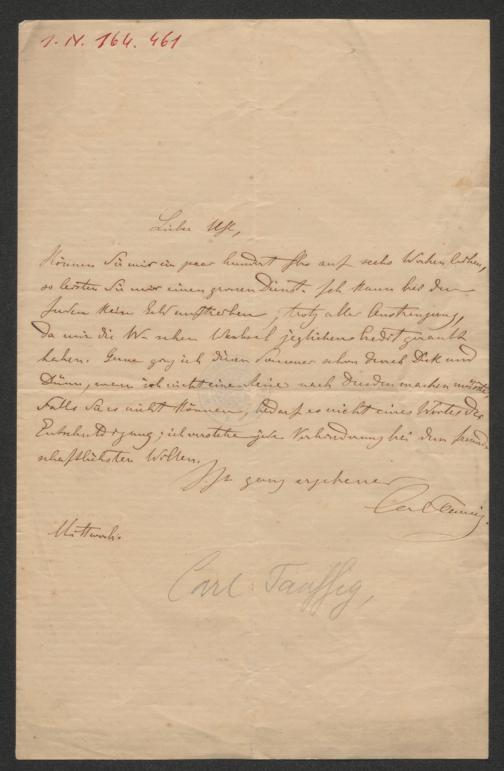 I. N. 164.461
Lieber Uhl,
Können Sie mir ein paar hundert fl. auf sechs Wochen leihen,
so leisten Sie mir einen grossen Dienst. Ich kann bei den
Juden kein Geld auftreiben, trotz aller Anstrengung,
da mir die W schen Wechsel jeglichen Credit geraubt
haben. Gerne ging ich diesen Sommer schon durch Dick und
Dünn, wenn ich nicht eine Reise nach Dresden machen müsste.
Falls Sie es nicht können, bedarf es nicht eines Wortes der
Entschuldigung; ich verstehe jede Verhinderung bei dem freund-
schaftlichsten Willen.
Ihr ganz ergebener
Carl Tausig.
Mittwoch.
Carl Taussig,